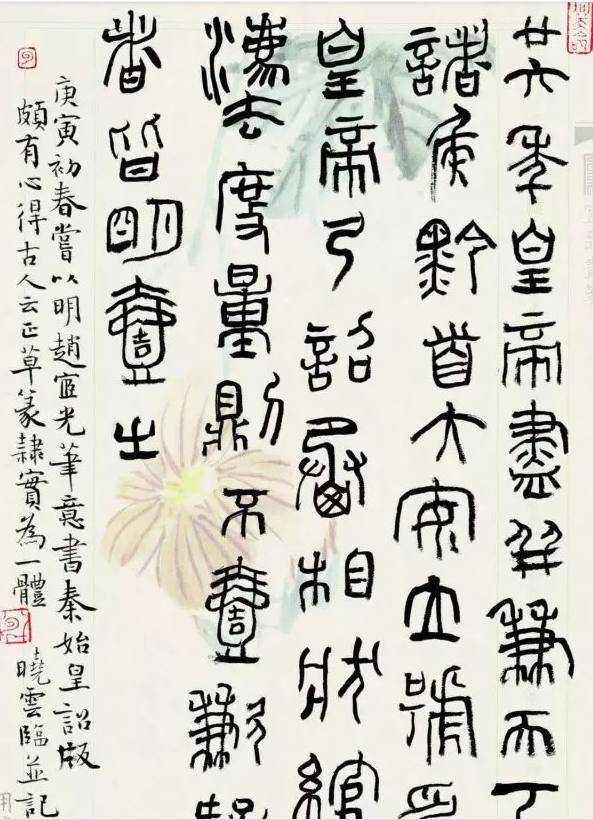 廿六年皇帝盡并兼天下
諸侯黔首大安立號為
皇帝乃詔丞相狀綰
灋度量則不壹歉疑
者皆明壹之
庚寅初春嘗以明趙宧光筆意書秦始皇詔版
頗有心得古人云正草篆隸實為一體 曉雲臨並記